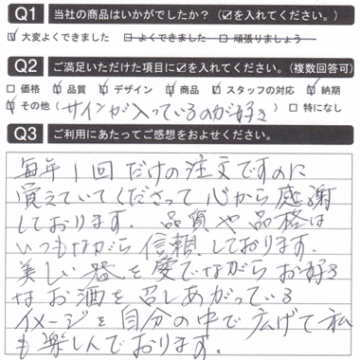 Q1 当社の商品はいかがでしたか?（☑を入れてください。）
☑ 大変よくできました □ よくできました □ 頑張りましょう
Q2 ご満足いただけた項目に☑を入れてください。（複数回答可）
□ 価格 ☑ 品質 ☑ デザイン ☑ 商品 ☑ スタッフの対応 ☑ 納期
☑ その他（サインが入っているのが好き） □ 特になし
Q3 ご利用にあたってご感想をおよせください。
毎年1回だけの注文ですのに
覚えていてくださって心から感謝
しております。品質や品格は
いつもながら信頼しております。
美しい器を愛でながらお好き
なお酒を召しあがっている
イメージを自分の中で広げて私
も楽しんでおります。